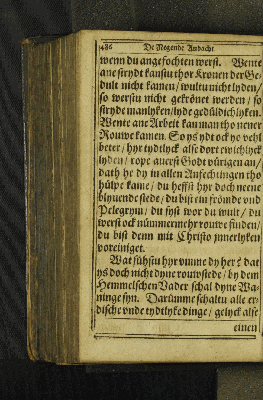 486 De Negende Andacht
wenn du angefochten werst. Wente
ane strydt kanstu thor Kronen der Ge-
dult nicht kamen/ wultu nicht lyden/
so werstu nicht gekrönet werden / so
stryde manlyken/lyde gedüldichlyken.
Wente ane Arbeit kan man tho nener
Rouwe kamen. So ys ydt ock yo vehl
beter / hyr tydtlyck alse dort ewichlyck
lyden / rope auerst Godt vürigen an/
dath he dy in allen Anfechtungen tho
hülpe kame / du heffst hyr doch nene
blyuende stede / du bist ein frömde vnd
Pelegrym / du syst wor du wult / du
werst ock nümmermehr rouwe finden/
du bist denn mit Christo jnnerlyken
voreiniget.
Wat sühstu hyr vmme dy her? dat
ys doch nicht dyne rouwstede / by dem
Hemmelschen Vader schal dyne Wa-
ninge syn. Darümme schaltu alle er-
dische vnde tydtlyke dinge / gelyck alse
einen